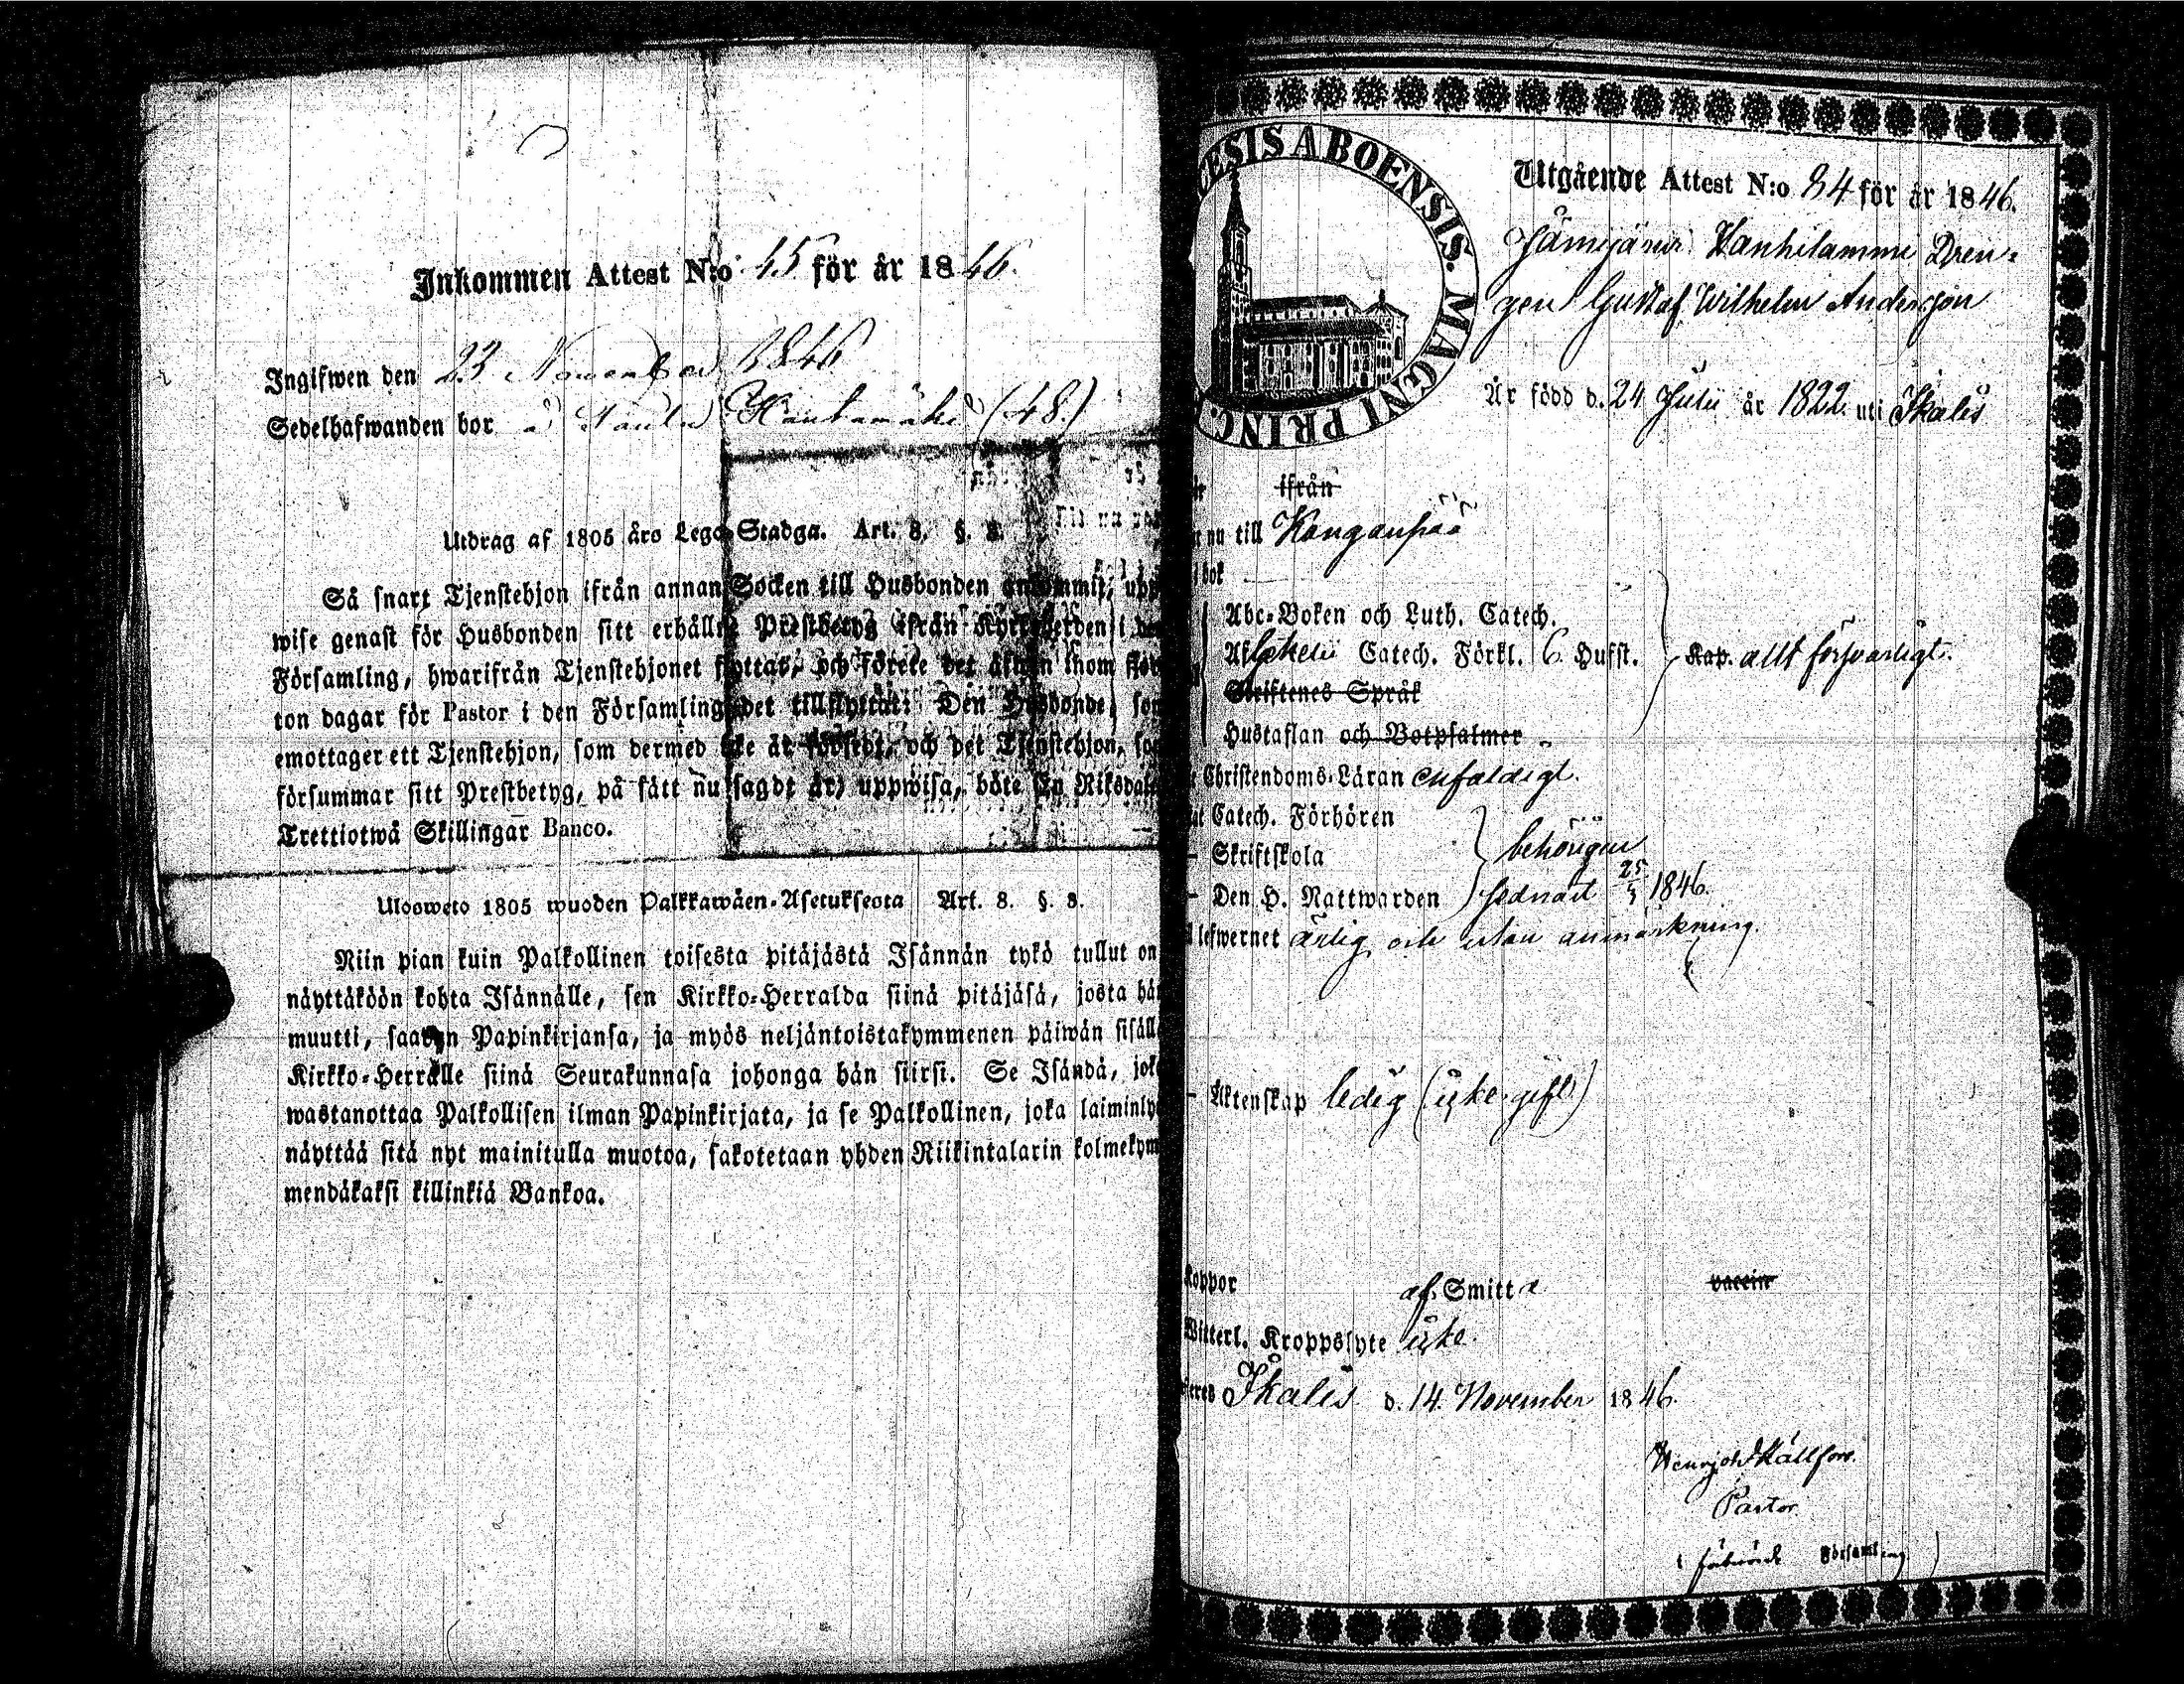 Inkommen Attest N:o 45 för år 1846.
Ingifwen den 23 November 1846
Sedelhafwanden bor å (48.)
Utdrag af 1805 års Lego Stadga. Art. 8. §. 8.
Så snart Tjenstehjon ifrån annan Socken till Husbonden ankommit, upp
wise genast för Husbonden sitt erhållna Prestbetyg ifrån Kyrkoherden i den
Församling, hwarifrån Tjenstehjonet flyttat, och förete det äfwen inom fjor
ton dagar för Pastor i den Församling det tillflyttat: Den Husbonde, som
emottager ett Tjenstehjon, som dermed icke är försedt, och det Tjenstehjon, som
försummar sitt Prestbetyg, på sätt nu sagdt är, uppwisa, böte En Riksdaler
Trettiotwå Skillingar Banco.
Ulosweto 1805 wuoden Palkkawäen-Asetuksesta Art. 8. §. 8.
Niin pian kuin Palkollinen toisesta pitäjästä Isännän tykö tullut on
näyttäköön kohta Isännälle, sen Kirkko-Herralda siinä pitäjäsä, josta hän
muutti, saadun Papinkirjansa, ja myös neljäntoistakymmenen päiwän sisällä
Kirkko-Herralle siinä Seurakunnasa johonga hän siirsi. Se Isändä, joka
wastanottaa Palkollisen ilman Papinkirjata, ja se Palkollinen, joka laiminly
näyttää sitä nyt mainitulla muotoa, sakotetaan yhden Riikintalarin kolmekym
mendäkaksi killinkiä Bankoa.
CESIS ABOENSIS. MAGNI PRINC.
Utgående Attest N:o 84 för år 1846.
Vanhilammi Dren-
gen Gustaf Wilhelm Andersson
Är född d. 24 Julii år 1822 uti Ikalis
ifrån
nu till Kangaupää
bok
Abc-Boken och Luth. Catech.
Af Catech. Förkl. 6 Hufst. Kap. allt förswarligt.
Skriftenes Språk
Hustaflan och Botpsalmer
Christendoms-Läran enfaldigt.
Catech. Förhören
– Skriftskola behörigen
– Den H. Nattwarden sednast 25/ 1846.
lefwernet ärlig och utan anmärkning.
– Äktenskap ledig (icke gift)
Koppor af Smitta vaccin
Witterl. Kroppslyte icke.
Ikalis d. 14. November 1846.
Pastor
i Församling